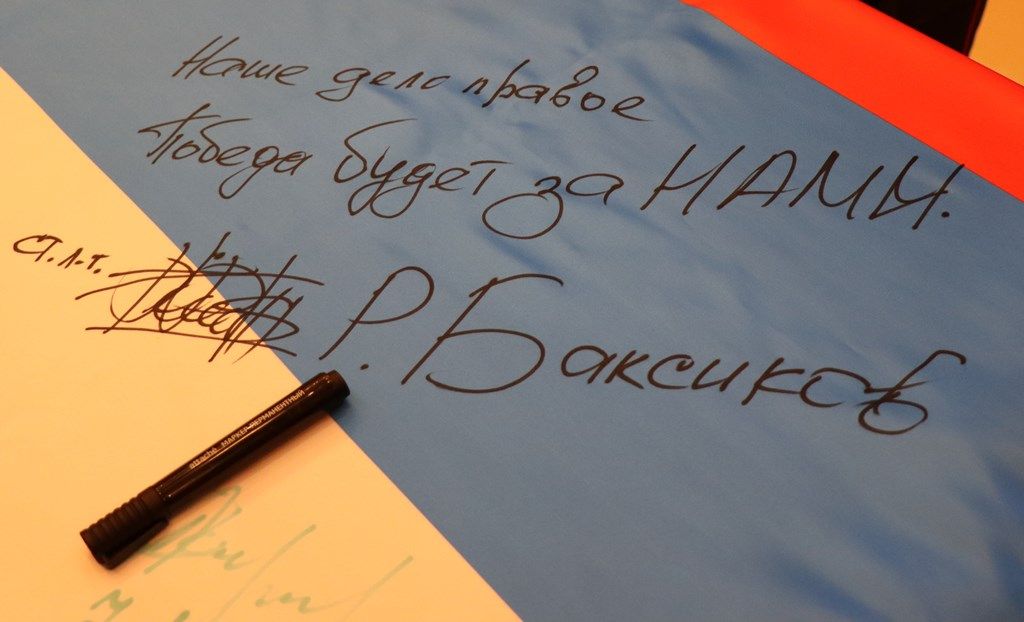 Наше дело правое
Победа будет за НАМИ.
ст. л-т. Р. Баксиков
attache МАРКЕР ПЕРМАНЕНТНЫЙ